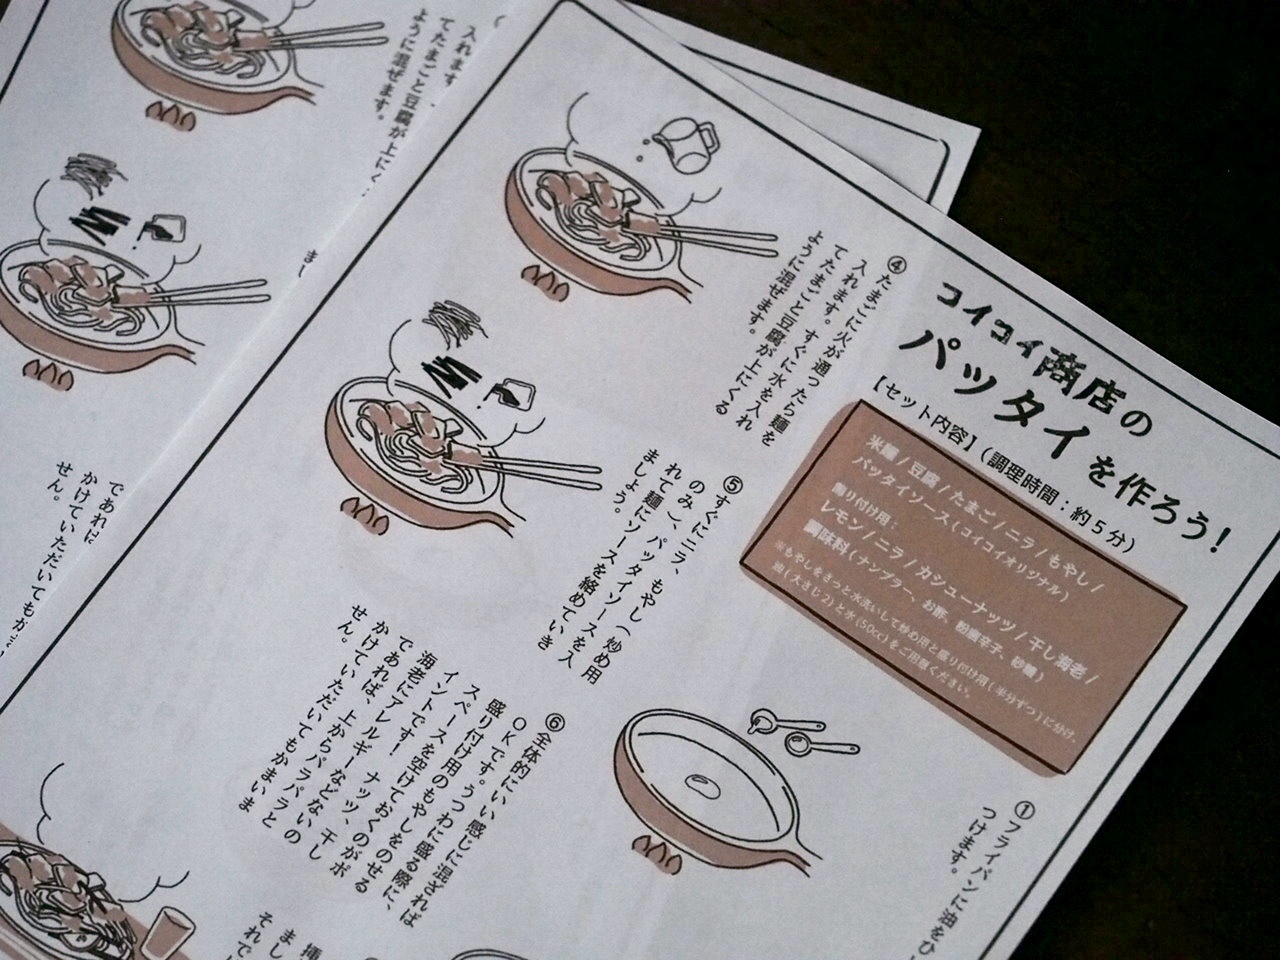 コイコイ商店の
パッタイを作ろう！
【セット内容】（調理時間：約５分）
米麺/豆腐/たまご/ニラ/もやし/
パッタイソース（コイコイオリジナル）
飾り付け用：
レモン/ニラ/カシューナッツ/干し海老/
調味料（ナンプラー、お酢、粉唐辛子、砂糖）
※もやしをさっと水洗いして炒め用と盛り付け用（半分ずつ）に分け、
油（大さじ２）と水（50cc）をご用意ください。
①フライパンに油をひ
つけます。
④たまごに火が通ったら麺を
入れます。すぐに水を入れ
てたまごと豆腐が上にくる
ように混ぜます。
⑤すぐにニラ、もやし（炒め用
のみ）、パッタイソースを入
れて麺にソースを絡めていき
ましょう。
⑥全体的にいい感じに混ざれば
ＯＫです。うつわに盛る際に、
盛り付け用のもやしをのせる
スペースを空けておくのがポ
イントです！ナッツ、干し
海老にアレルギーなどない の
であれば、上からパラパラと
かけていただいてもかまいま
せん。
まし
それでし
入れます
てたまごと豆腐が上にく
ように混ぜます。
であれは
かけていただいてもか
せん。